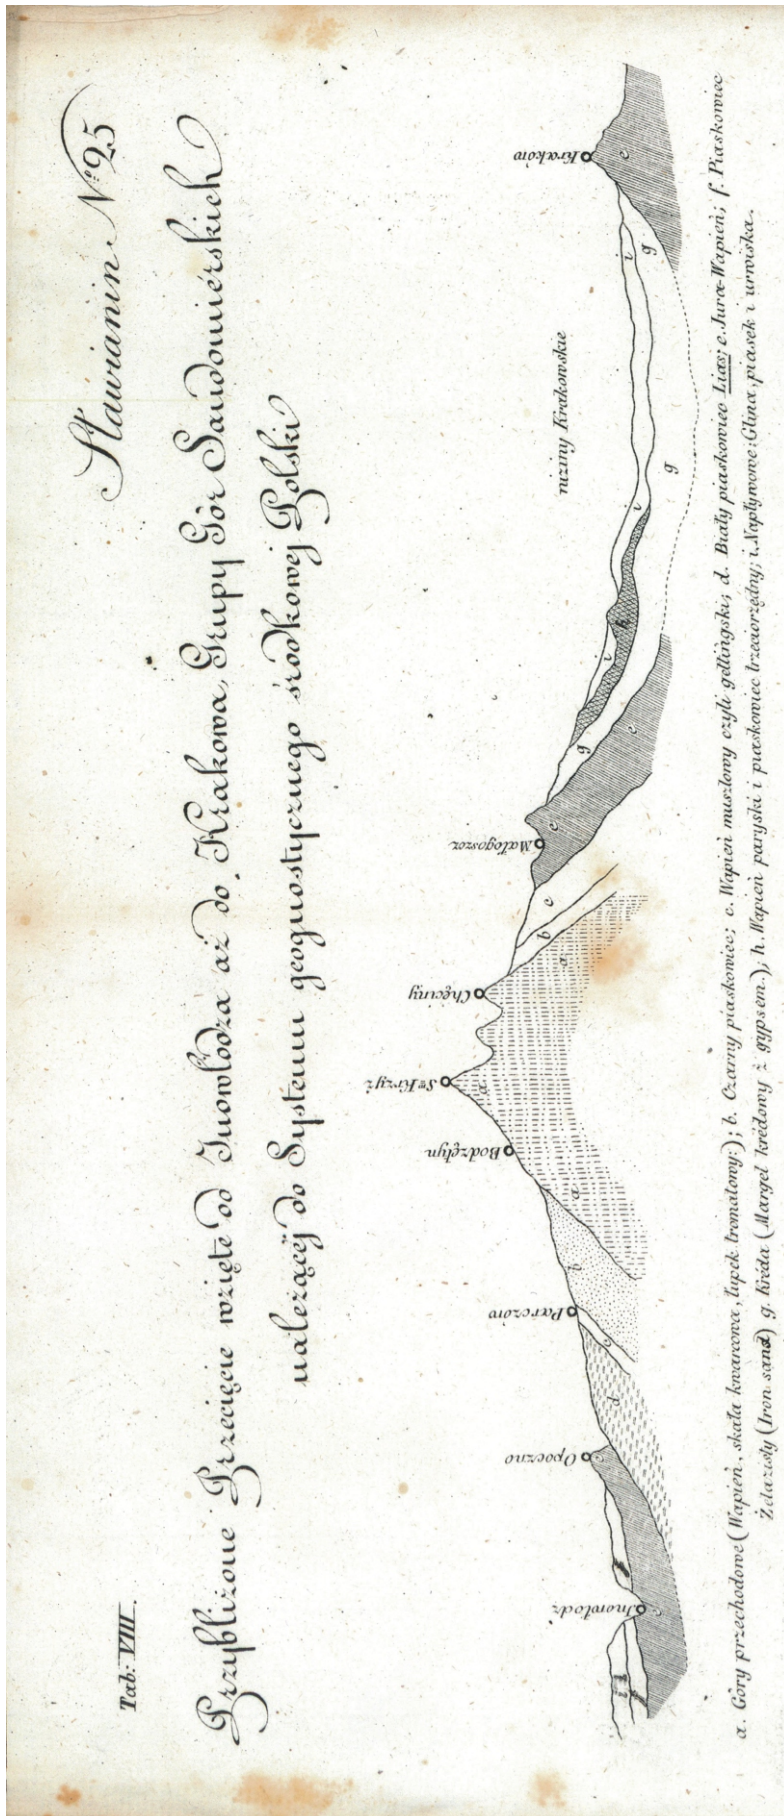 Sławianin N.º 25
Tab: VIII.
Przybliżone Przecięcie wzięte od Inowłodza aż do Krakowa, Grupy Gór Sandomiérskich
należącéj do Systemu geognostycznego środkowej Polski
Inowłodz
Opoczno
Parczów
Bodzętyn
Sty Krzyż
Chęciny
Małogoszcz
niziny Krakowskie
Kraków
i
f
e
e
d
c
b
a
a
a
b
c
e
e
g
i
h
i
g
g
i
e
a. Góry przechodowe (Wapień, skała kwarcowa, łupek tromatowy:); b. Czarny piaskowiec; c. Wapień muszlowy czyli gettingski; d. Biały piaskowiec Lias; e. Jura-Wapień; f. Piaskowiec
Żelazisty (Iron. sand) g. Kréda (Margel krédowy z gypsem.); h. Wapień paryski i piaskowiec trzeciorzędny; i. Napływowe: Glina, piasek i urwiska.